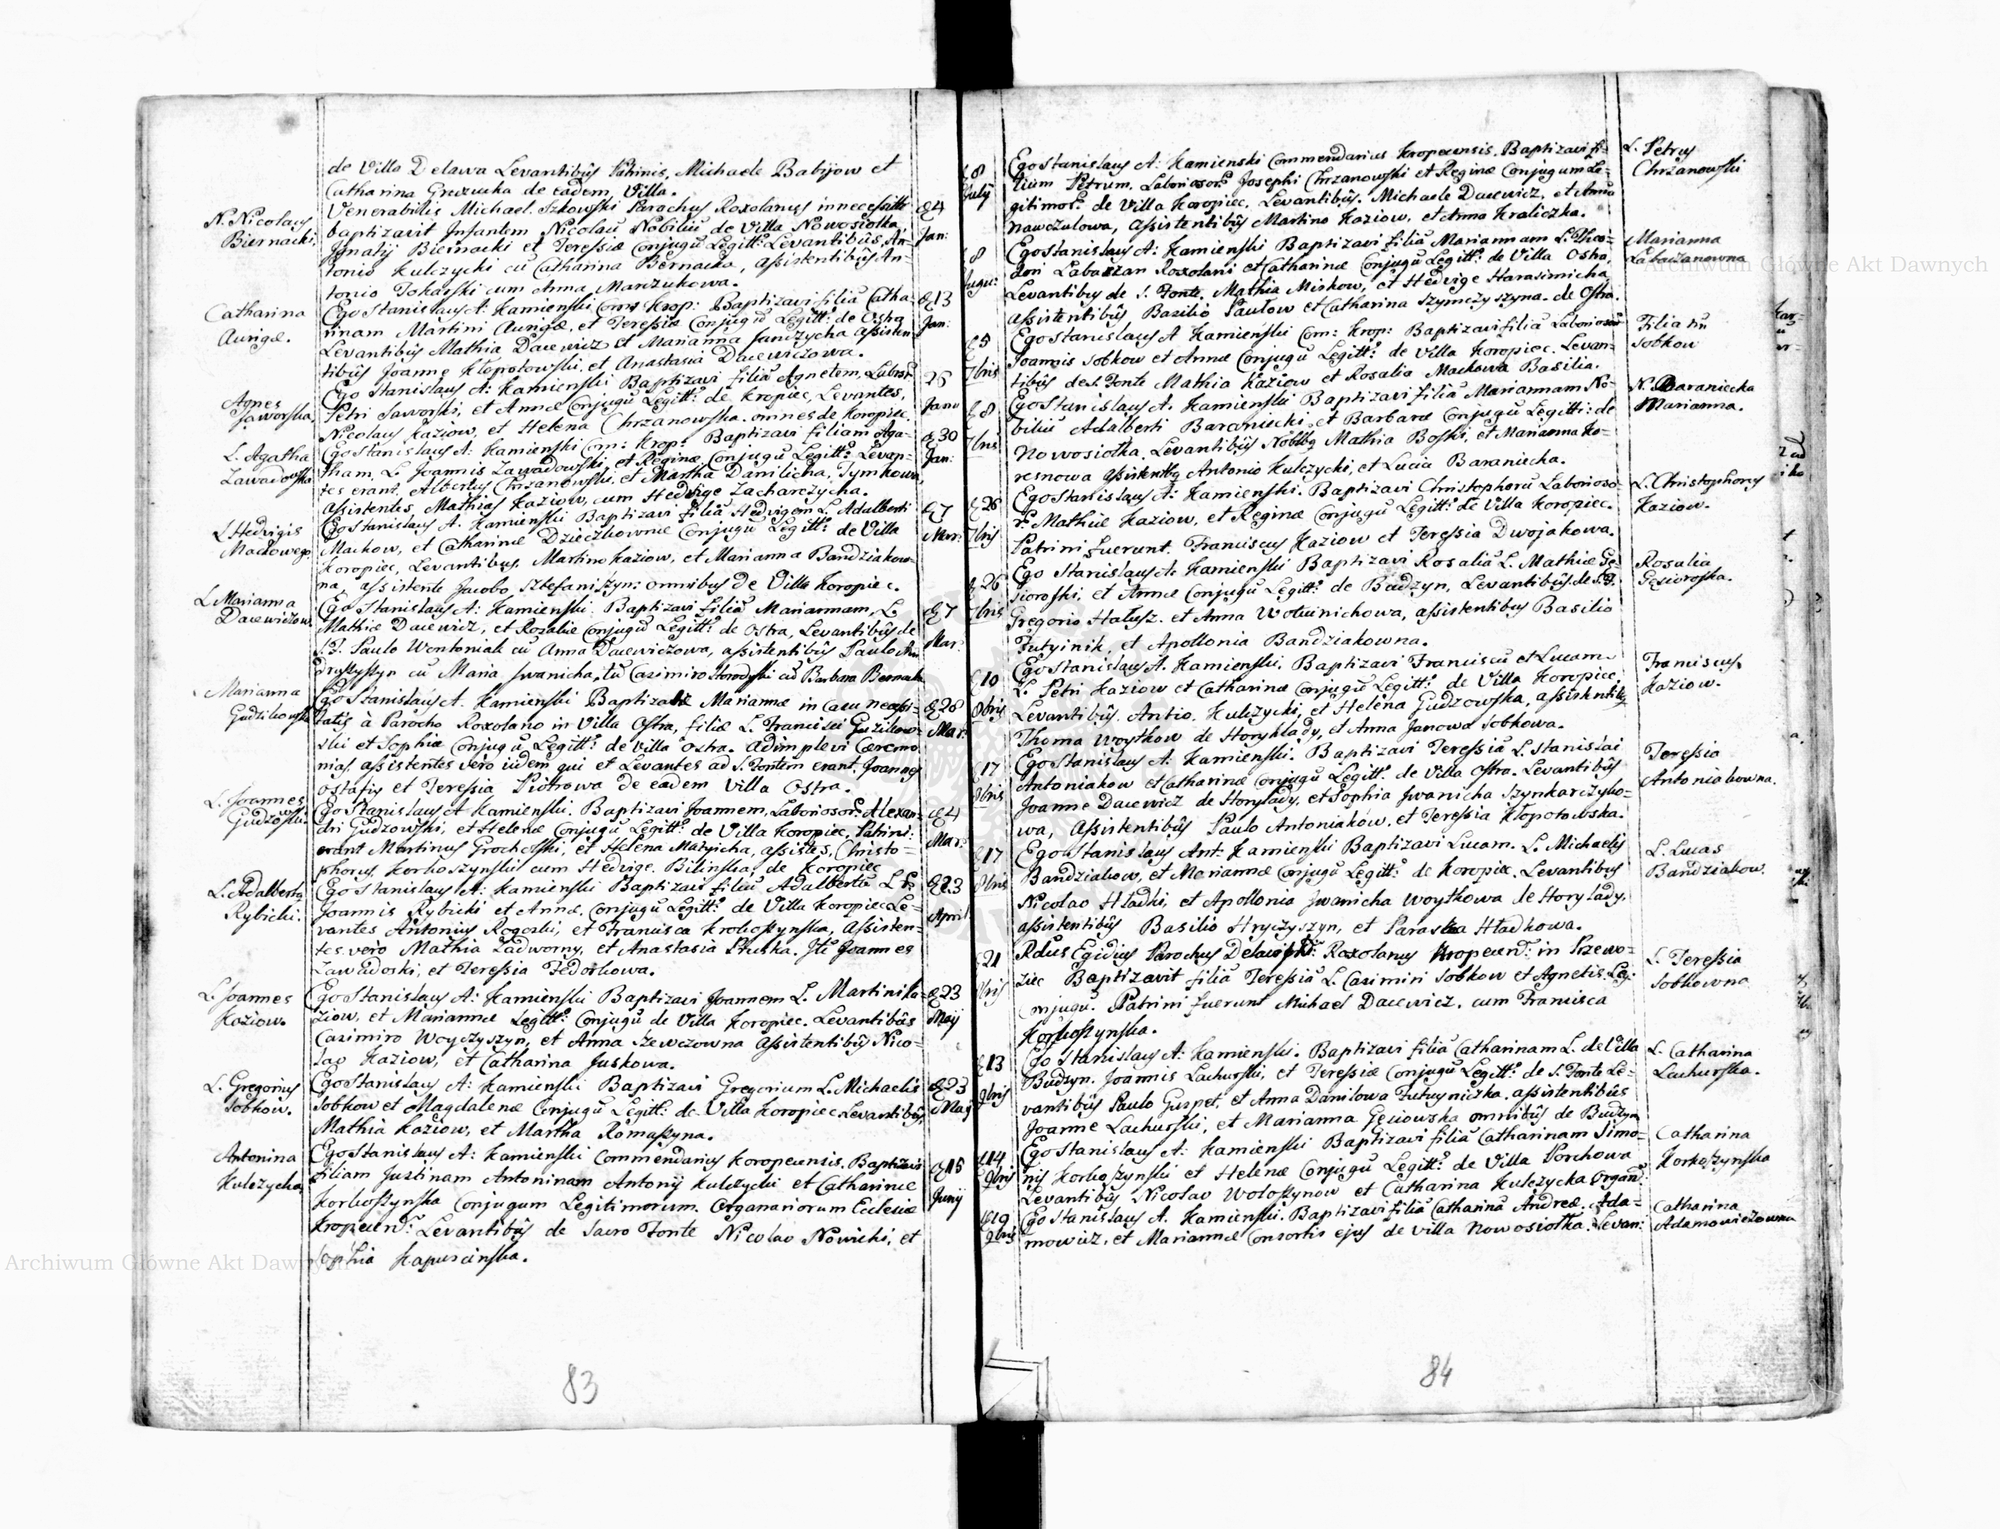 de Villa Delawa Levantibus Patrinis, Michaele Babijow et
Catharina Gruzucka de eadem Villa.
N. Nicolaus
Biernacki.
Venerabilis Michael Szkowski Parochus Roxolanus in necessitate
baptizavit Infantem Nicolaũ Nobiliũ de Villa Nowosiołka
Jgnatij Biernacki et Teressiæ Conjugũ Legitt: Levantibus An-
tonio Kulczycki cũ Catharina Bernacka, assistentibus An-
tonio Tokarski cum Anna Manzukowa.
24
Jan:
Catharina
Aungæ.
Ego Stanislaus A: Kamienski Com: Krop: Baptizavi filiã Catha-
rinam Martini Aungæ, et Teressiæ Conjugũ Legitt: de Ostra
Levantibus Mathia Dacewicz et Marianna Jandzycha assisten
tibus Joanne Klopotowski, et Anastasia Dacewiczowa.
13
Jan:
Agnes
Jaworska.
Ego Stanislaus A: Kamienski Baptizavi filiã Agnetem, Labor:
Petri Jaworski, et Annæ Conjugũ Legitt: de Kropiec, Levantes,
Nicolaus Kaziow, et Helena Chrzanowska. omnes de Koropiec.
26
Janu
L. Agatha
Zawadowska
Ego Stanislaus A: Kamienski Com: Krop: Baptizavi filiam Aga-
tham, L. Joannis Zawadowski, et Reginæ, Conjugũ Legitt: Levan-
tes erant, Albertus Chrzanowski, et Martha Danilicha, Tymkowa,
assistentes, Mathias Kaziow, cum Hedvige Zacharczycha.
30
Jan:
L Hedvigis
Machowego
Ego Stanislaus A: Kamienski Baptizavi filiã Hedvigem L. Adalberti
Machow, et Catharinæ Dzieczkowniæ Conjugũ Legitt: de Villa
Koropiec, Levantibus. Martino Kaziow, et Marianna Bandziakow-
na, assistente Jacobo Sztefaniszyn: omnibus de Villa Koropiec.
7
Mar:
L Marianna
Dacewiczow
Ego Stanislaus A: Kamienski. Baptizavi filiã Mariannam, L.
Mathiæ Dacewicz, et Rozaliæ Conjugũ Legitt: de Ostra, Levantibus de
S. F. Paulo Wontoniak cũ Anna Dacewiczowa, assistentibus Paulo An
druszyszyn cũ Maria Jwanicha, tũ Casimiro Horodyski cũ Barbara Bernacka
7
Mar:
Marianna
Gudzikowska
Ego Stanislaus A. Kamienski Baptizatæ Mariannæ in casu necessi-
tatis à Parocho Roxolano in Villa Ostra, filiæ L. Francisci Guzikow-
ski et Sophiæ Conjugũ Legitt: de villa Ostra. Adimplevi Cæremo
nias, assistentes vero iidem qui et Levantes ad S. Fontem erant, Joannes
Ostafis et Teressia Piotrowa de eadem Villa Ostra.
28
Mar:
L. Joannes
Gudzowski.
Ego Stanislaus A Kamienski. Baptizavi Joannem, Laboriosor: Alexan-
dri Gudzowski, et Helenæ Conjugũ Legitt: de Villa Koropiec, Patrini:
erant Martinus Grocholski, et Helena Matyicha, assistes, Christo-
phorus, Korkoszynski cum Hedvige. Bilinska, de Koropiec.
4
Mar:
L. Adalbertus
Rybicki.
Ego Stanislaus A: Kamienski Baptizavi filiũ Adalbertũ L.
Joannis Rybicki et Annæ. Conjugũ Legitt: de Villa Koropiec Le-
vantes Antonius Rogoski, et Francisca Krokoszynska, Assisten-
tes vero Mathia Zadworny, et Anastasia Słuska. Jtẽ Joannes
Zawadoski, et Teressia Fedorkowa.
23
April:
L. Joannes
Kaziow.
Ego Stanislaus A: Kamienski Baptizavi Joannem L. Martini Ka-
ziow, et Mariannæ Legitt: Conjugũ de Villa Koropiec. Levantibus
Casimiro Woyczyszyn, et Anna Szewczowna Assistentibus Nico-
lao Kaziow, et Catharina Juskowa.
23
Maij
L. Gregorius
Sobkow.
Ego Stanislaus A: Kamienski Baptizavi Gregorium L. Michaelis
Sobkow et Magdalenæ Conjugũ Legitt: de Villa Koropiec Levantibus,
Mathia Kaziow, et Martha Romaszyna.
23
Maij
Antonina
Kulczycka
Ego Stanislaus A: Kamienski Commendarius Koropecensis. Baptizavi
Filiam Justinam Antoninam Antonij Kulczycki et Catharinæ
Korkoszynska Conjugum Legitimorum, Organariorum Ecclesiæ
Kropecen: Levantibus de Sacro Fonte Nicolao Nowicki, et
Sophia Kapuscinska.
15
Junij
83
8
July
Ego Stanislaus A: Kamienski Commendarius Kropecensis. Baptizavi fi-
lium Petrum, Laboriosor: Josephi Chrzanowski et Reginæ Conjugum Le-
gitimor: de Villa Koropiec. Levantibus. Michaele Dacewicz, et Anna
Nawczulowa, assistentibus Martino Kaziow, et Anna Kraliczka.
L. Petrus
Chrzanowski
8
Augu:
Ego Stanislaus A: Kamienski Baptizavi filiã Mariannam L. Theo-
dori Labaczan Roxolani et Catharinæ Conjugũ Legitt: de Villa Ostra,
Levantibus de S. Fonte. Mathia Miskow, et Hedvige Harasimicha
assistentibus Basilio Pawlow et Catharina Szymczyszyna. de Ostra.
Marianna
Labaczanowna
5
7bris
Ego Stanislaus A Kamienski Com: Krop: Baptizavi filiã Laboriosor
Joannis Sobkow et Annæ Conjugũ Legitt: de Villa Koropiec. Levan-
tibus de S. Fonte Mathia Kaziow et Rosalia Machowa Basilia.
Filia
Sobkow
8
7bris
Ego Stanislaus A. Kamienski Baptizavi filiã Mariannam No-
bilis Adalberti Baraniecki, et Barbaræ Conjugũ Legitti: de
Nowosiołka. Levantibus Nobbq Mathia Boski, et Marianna Ko-
resnowa assistentbq Antonio Kulczycki, et Lucia Baraniecka.
N. Baraniecka
Marianna.
26
7bris
Ego Stanislaus A: Kamienski. Baptizavi Christophorũ Laborioso-
r: Mathiæ Kaziow, et Reginæ Conjugũ Legitt: de Villa Koropiec.
Patrini fuerunt. Franciscus Kaziow et Teressia Dwojakowa.
L. Christophorus
Kaziow.
26
7bris
Ego Stanislaus A. Kamienski Baptizavi Rosaliã L. Mathiæ Gę-
siorofski, et Annæ Conjugũ Legitt: de Budzyn, Levantibus de S. F.
Gregorio Hałusz. et Anna Wołuinichowa, assistentibus Basilio
Futyinik, et Apollonia Bandziakowna.
Rosalia
Gęsiorofska.
10
8bris
Ego Stanislaus A. Kamienski. Baptizavi Franciscũ et Lucam
L. Petri Kaziow et Catharinæ Conjugũ Legitt: de Villa Koropiec,
Levantibus. Antio. Kulczycki, et Helena Gudzowska, assistentib
Thoma Woytkow de Horyhlady, et Anna Janowa Sobkowa.
Franciscus
Kaziow.
17
8bris
Ego Stanislaus A: Kamienski. Baptizavi Teressiã L. Stanislai
Antoniakow et Catharinæ Conjugũ Legitt: de Villa Ostra. Levantibus
Joanne Dacewicz de Horylady, et Sophia Jwanicha Szynkarczyko-
wa, Assistentibus Paulo Antoniakow, et Teressia Kłopotowska.
Teressia
Antoniakowna.
17
8bris
Ego Stanislaus Ant. Kamienski Baptizavi Lucam. L. Michaelis
Bandziakow, et Mariannæ Conjugũ Legitt: de Koropiec. Levantibus
Nicolao Hładki, et Apollonia Jwanicha Woytkowa de Horylady,
assistentibus Basilio Hryczyszyn, et Paraska Hładkowa.
L. Lucas
Bandziakow.
21
8bris
Rdus Egidius Parochus Roxolanus Kropecen: in Przewo-
ziec Baptizavit filiã Teressiã L. Casimiri Sobkow et Agnetis Leg:
Conjugũ. Patrini fuerunt Michael Dacewicz, cum Francisca
Korkoszynska.
L. Teressia
Sobkowna
13
9bris
Ego Stanislaus A: Kamienski. Baptizavi filiã Catharinam L. de Villa
Budzyn. Joannis Lachurski, et Teressiæ Conjugũ Legitt: de S. Fonte Le-
vantibus Paulo Guspet, et Anna Danilowa Futuyniczka. assistentibus
Joanne Lachurski, et Marianna Gęsiowska omnibus de Budzyn
L. Catharina
Lachurska.
14
9bris
Ego Stanislaus A: Kamienski Baptizavi filiã Catharinam Simo-
nis Korkoszynski et Helenæ Conjugũ Legitt: de Villa Porchowa
Levantibus Nicolao Wołoszynow et Catharina Kulczycka Organ:
Catharina
Korkoszynska
19
9bris
Ego Stanislaus A. Kamienski. Baptizavi filiã Catharinã Andreæ. Ada-
mowicz, et Mariannæ Consortis ejus de villa Nowosiołka. Levan:
Catharina
Adamowiczowna
84
Archiwum Główne Akt Dawnych
Archiwum Główne Akt Dawnych